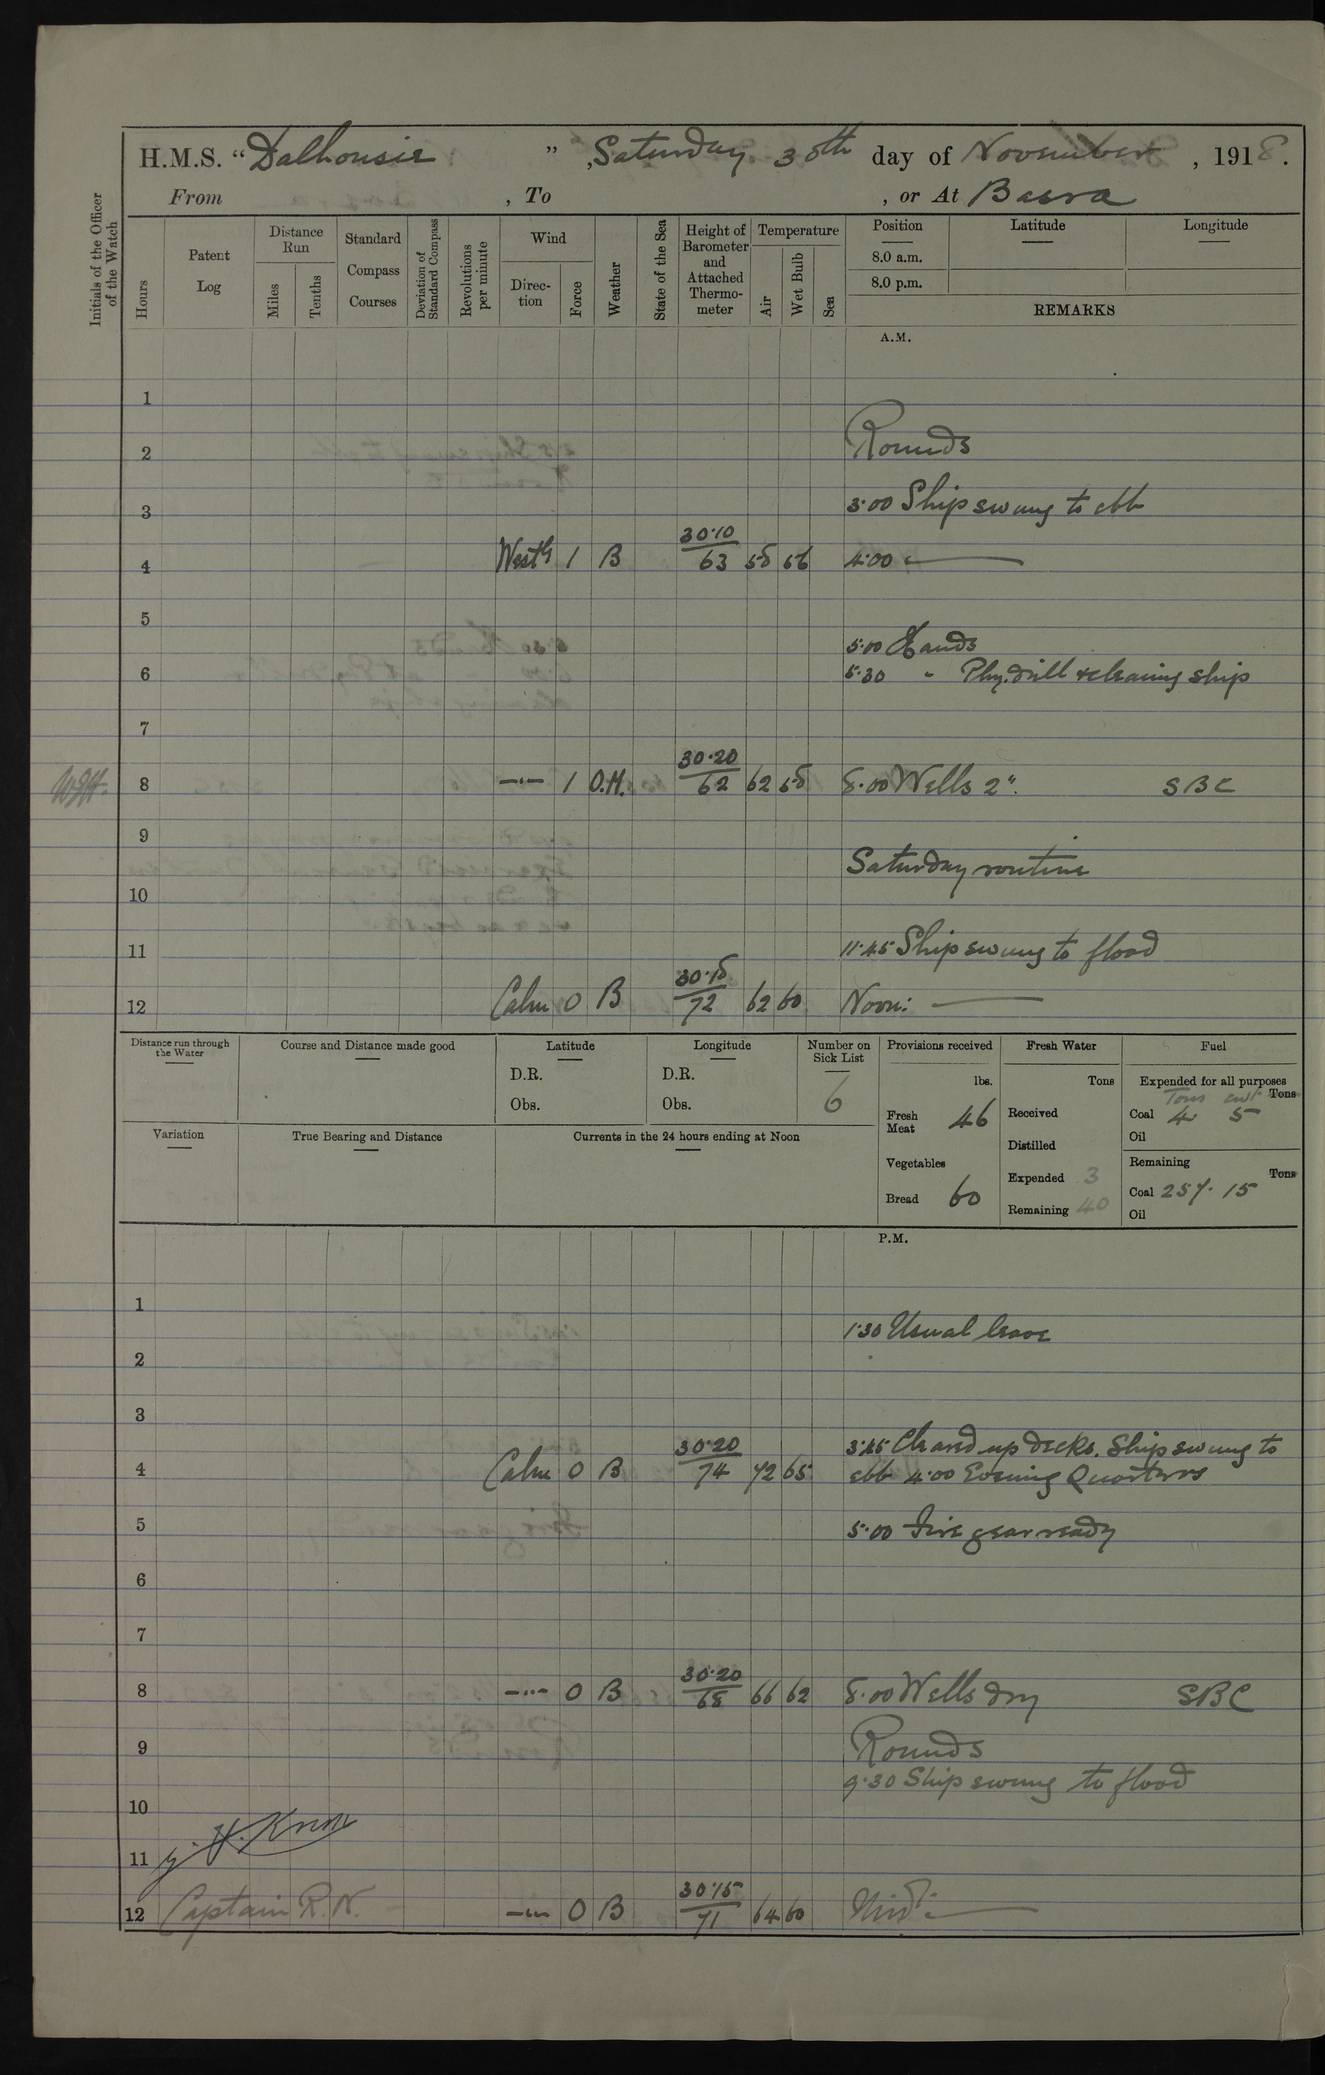 H.M.S. “Dalhousie ”, Saturday 30th day of November, 1918.
From , To , or At Basra
Initials of the Officer of the Watch
Hours
Patent Log
Distance Run
Miles
Tenths
Standard Compass Courses
Deviation of Standard Compass
Revolutions per minute
Wind
Direction
Force
Weather
State of the Sea
Height of Barometer and Attached Thermometer
Temperature
Air
Wet Bulb
Sea
Position Latitude Longitude
8.0 a.m.
8.0 p.m.
REMARKS
A.M.
1
2 Rounds
3 3.00 Ship swung to ebb
30.10
4 1 B 63 58 56 4.00 —
5
5.00 Hands
6 5.30 " Phy. drill & cleaning ship
7
30.20
8 —"— 1 O.M. 62 62 58 8.00 Wells 2". SBC
9
Saturday routine
10
11 11.45 Ship swung to flood
30.18
12 Calm 0 B 72 62 60 Noon: —
Distance run through the Water
Course and Distance made good
Latitude
D.R.
Obs.
Longitude
D.R.
Obs.
Number on Sick List
6
Provisions received
lbs.
Fresh Meat 46
Vegetables
Bread 60
Fresh Water
Tons
Received
Distilled
Expended 3
Remaining 40
Fuel
Expended for all purposes
Tons cwt Tons
Coal 4 5
Oil
Remaining
Tons
Coal 257. 15
Oil
Variation
True Bearing and Distance
Currents in the 24 hours ending at Noon
P.M.
1
1.30 Usual leave
2
3
30.20 3.45 Cleared up decks. Ship swung to
4 Calm 0 B 74 72 65 ebb 4.00 Evening Quarters
5 5.00 Fire gear ready
6
7
30.20
8 —"— 0 B 68 66 62 8.00 Wells dry SBC
9 Rounds
9.30 Ship swung to flood
10
11
30.15
12 Captain R.N. —"— 0 B 71 64 60 Midt: —